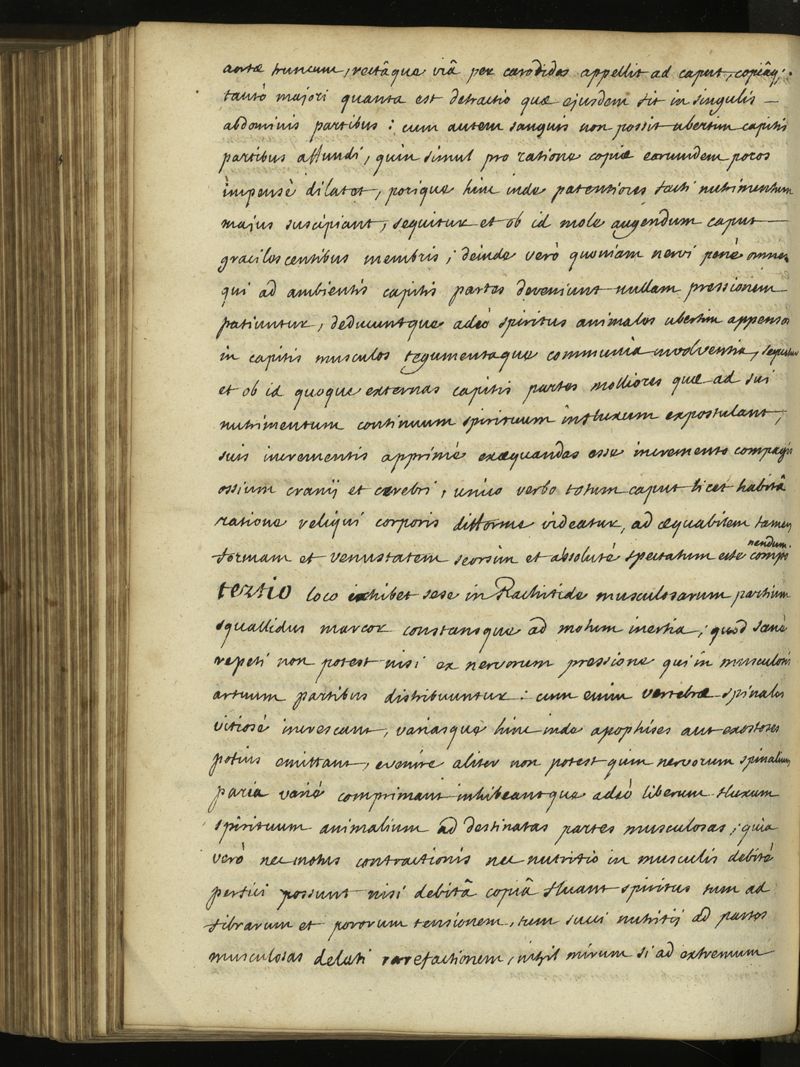 aortæ truncum, rectâque viâ per carodides appellit ad caput, copiâq;
tantò majori quanta est detractio quæ ejusdem fit in singulis
abdominis partibus: cum autem sanguis non possit ubertim capitis
partibus affundi, quin simul pro ratione copiæ earumdem poros
impensè dilatet, porique hinc inde patentiores facti nutrimentum
majus suscipiant, sequitur et ob id mole augendum caput
gracilescentibus membris; deinde verò quoniam nervi penè omnes
qui ad ambientis capitis partes deveniunt nullam pressionem
patiuntur, deducuntque adeò spiritus animales ubertim appensos
in capitis musculos tegumentaque communia involventia, sequitur
et ob id quoque externas capitis partes molliores quæ ad sui
nutrimentum continuum spirituum influxum expostulant,
suis incrementis apprimè exæquandas esse incremento compagis
ossium cranij et cerebri, unius verbo totum caput licet habitâ
ratione reliqui corporis difforme videatur, ad æquabilem tamen
formam et venustatem seorsim et absolutè spectatum esse compo
nendum.
tertio loco exhibet sese in Rachitide musculosarum partium
squallidus marcor constansque ad motum inertia; quod sanè
repeti non potest nisi ex nervorum pressione qui in musculosis
artuum partibus distribuuntur: cum enim vertebræ spinales
vitiosè increscant, variasque hinc inde apophises aut exostoses
potius emittant, evenire aliter non potest quin nervorum spinalium
paria variè comprimant inhibeantque adeò liberum fluxum
spirituum animalium ad destinatas partes musculosas; quia
verò nec motus contractionis nec nutritio in musculis debitè
perfici possunt nisi debitâ copiâ fluant spiritus tum ad
fibrarum et pororum tensionem, tum succi nutritij ad partes
musculosas delati rarefactionem, nihil mirum si ad extremum